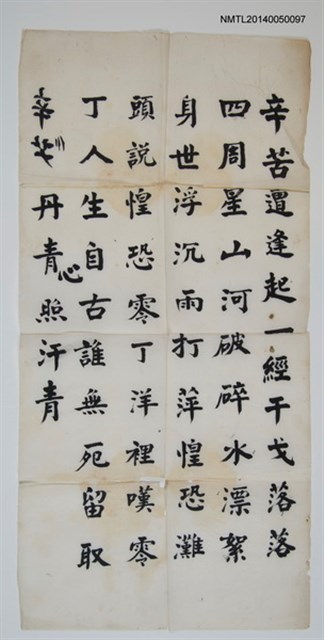 NMTL20140050097
辛苦遭逢起一經干戈落落
四周星山河破碎水漂絮
身世浮沉雨打萍惶恐灘
頭説惶恐零丁洋裡嘆零
丁人生自古誰無死留取
丹青心照汗青